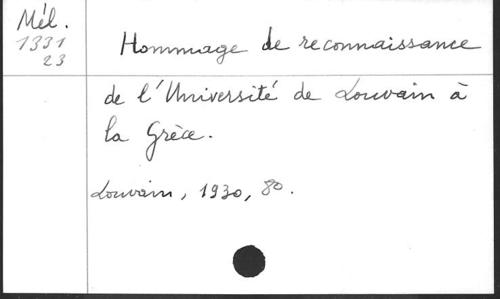 Mél.
1331
23
Hommage de reconnaissance
de l'Université de Louvain à
la Grèce.
Louvain, 1930, 8o.